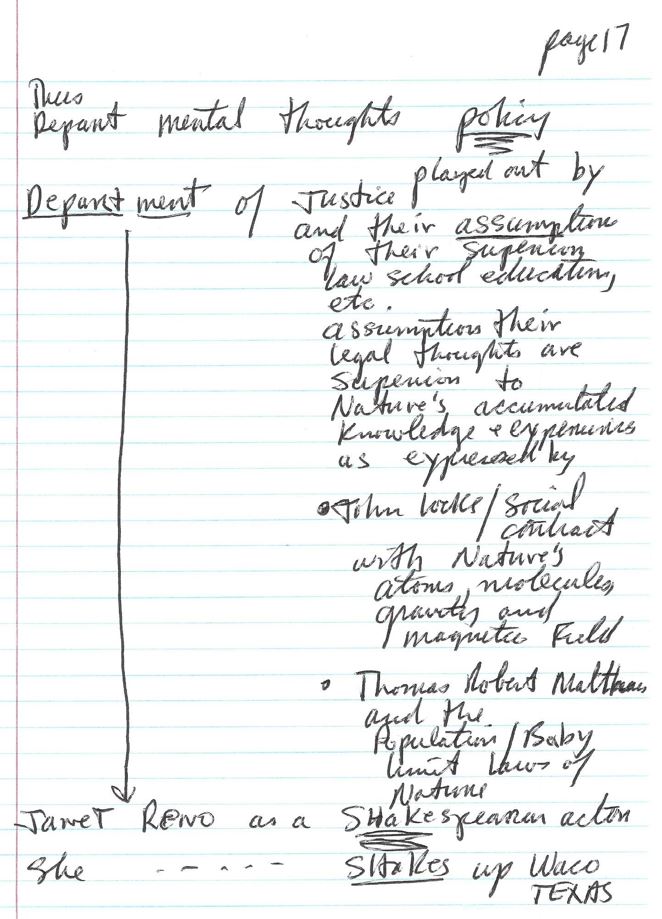 page 17
Thus
Depart mental thoughts policy
played out by
Department of Justice
and their assumption
of their superior
law school education,
etc.
assumption their
legal thoughts are
superior to
Nature's accumulated
knowledge + experiences
as expressed by
• John Locke / Social
contract
with Nature's
atoms, molecules,
gravity and
magnetic Field
• Thomas Robert Malthus
and the
Population / Baby
limit Laws of
Nature
JANET RENO as a SHAKespearean actor
She ----- SHAKes up Waco
TEXAS